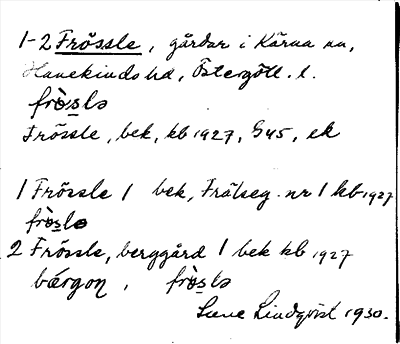 1-2 Frössle, gårdar i Kärna sn,
Hanekinds hd, Östergötl. l.
frö̀slə
Frössle, bek, kb 1927, S45, ek
1 Frössle 1 bek, Frälseg. nr 1 kb 1927
frö̀slə
2 Frössle, berggård 1 bek kb 1927
bærgon, frö̀slə
Sune Lindqvist 1930.